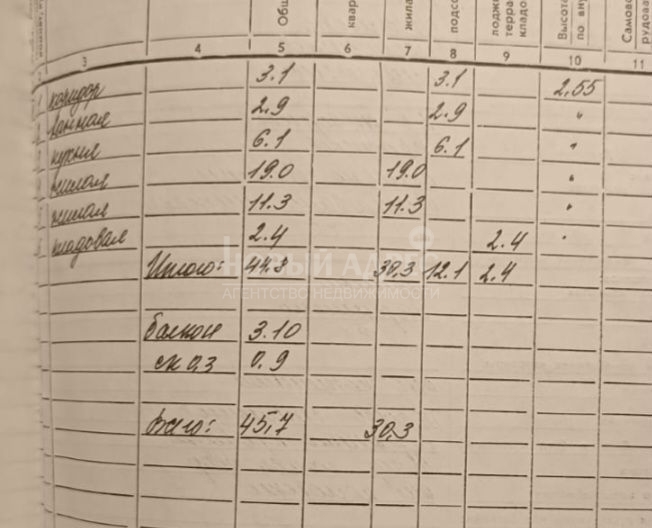 Общ
квар
жила
подсо
лоджи
террас
кладо
Высота
по вну
Самово
рудова
3 4 5 6 7 8 9 10 11
коридор 3.1 3.1 2,55
ванная 2.9 2.9 "
кухня 6.1 6.1 "
жилая 19.0 19.0 "
жилая 11.3 11.3 "
кладовая 2.4 2.4 "
Итого: 44.8 30,3 12.1 2.4
НОВЫЙ АДРЕС
АГЕНТСТВО НЕДВИЖИМОСТИ
балкон 3.10
ск 0,3 0.9
Всего: 45,7 30,3